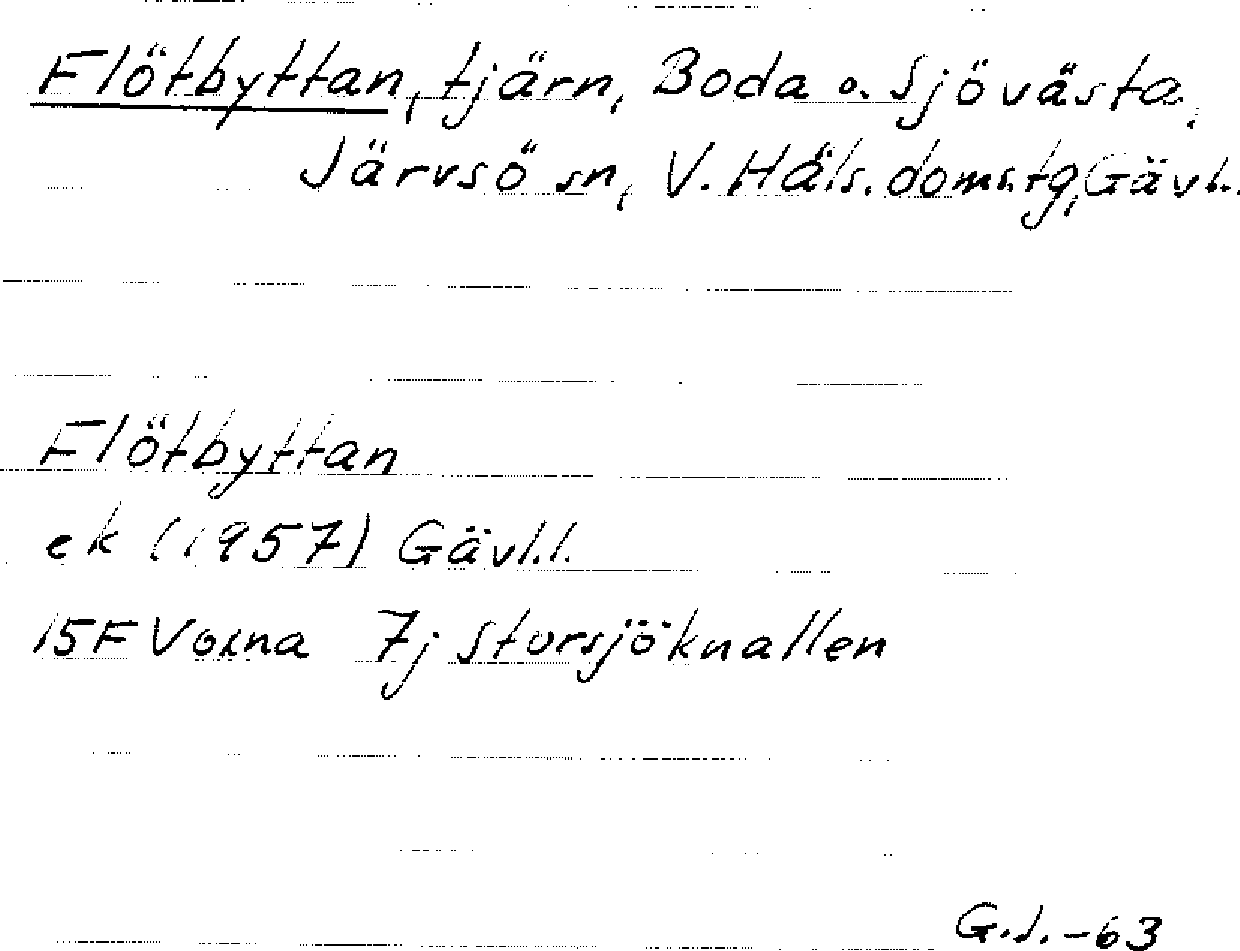 Flötbyttan, tjärn, Boda o. Sjövästa,
Järvsö sn, V. Häls. doms.tg, Gävl.
Flötbyttan
ek (1957) Gävl.l.
15F Voxna 7j Storsjöknallen
G.J. -63